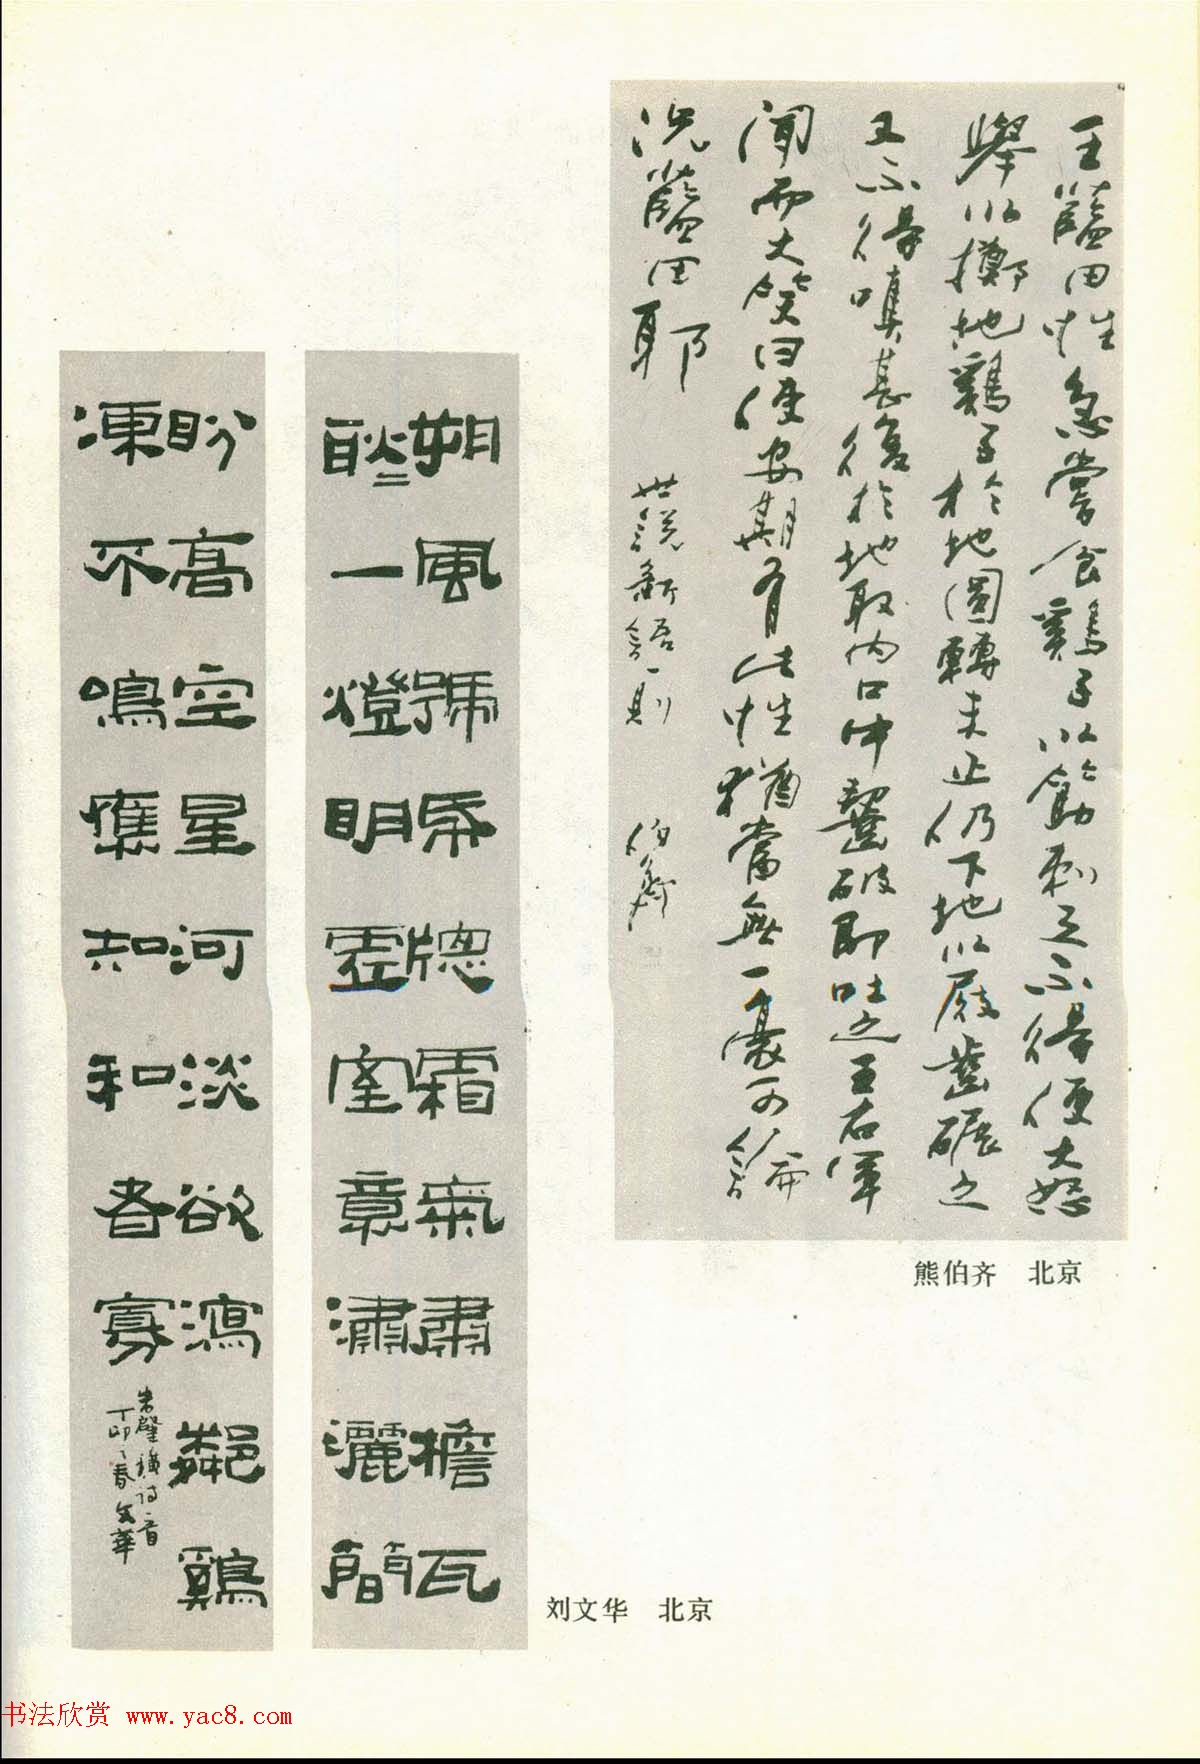 王藍田性急嘗食雞子以筯刺之不得便大怒
舉以擲地雞子於地圓轉未止仍下地以屐齒碾之
又不得嗔甚復於地取內口中齧破即吐之王右軍
聞而大笑曰使安期有此性猶當無一豪可論
況藍田耶
世說新語一則 伯齊
熊伯齐 北京
朔風號帋牕霜氣肅檐瓦
耿〻一燈明虛室意瀟灑簡
盼高空星河淡欲瀉鄰鷄
凍不鳴應知和者寡
朱肇璜詩一首
丁卯之春文華
刘文华 北京
书法欣赏 www.yac8.com